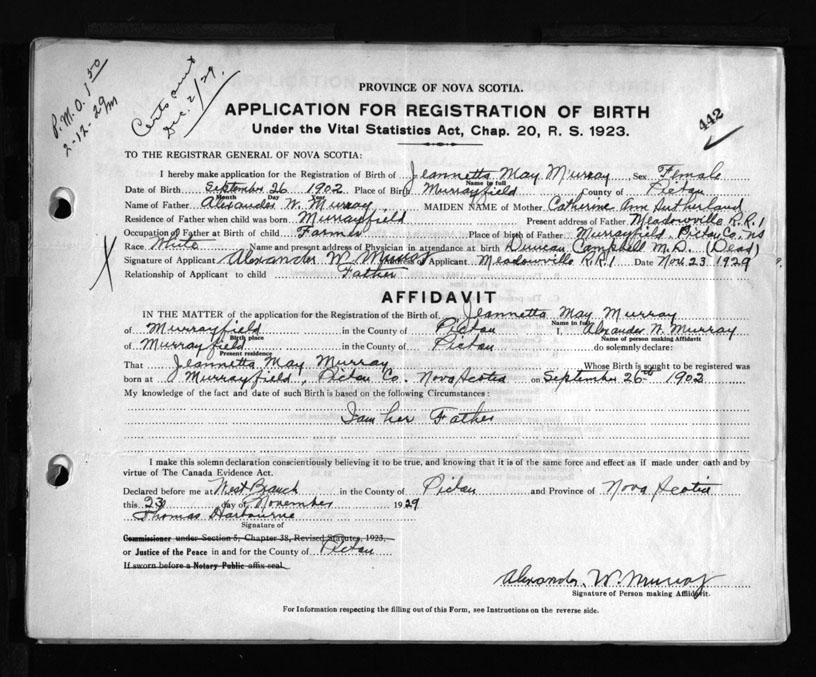 P.M.O. 1 50
2-12-29
Certs sent
Dec. 2/29.
PROVINCE OF NOVA SCOTIA.
442
APPLICATION FOR REGISTRATION OF BIRTH
Under the Vital Statistics Act, Chap. 20, R. S. 1923.
TO THE REGISTRAR GENERAL OF NOVA SCOTIA:
I hereby make application for the Registration of Birth of Jeannetta May Murray Sex Female
Name in full
Date of Birth September 26 1902 Place of Birth Murrayfield County of Pictou
Month Day
Name of Father Alexander W. Murray MAIDEN NAME of Mother Catherine Ann Sutherland
Residence of Father when child was born Murrayfield Present address of Father Meadowville R.R.1
Occupation of Father at Birth of child Farmer Place of birth of Father Murrayfield Pictou Co. NS
Race White Name and present address of Physician in attendance at birth Duncan Campbell M.D. (Dead)
Signature of Applicant Alexander W Murray Address of Applicant Meadowville R.R.1 Date Nov. 23 1929
Relationship of Applicant to child Father
AFFIDAVIT
IN THE MATTER of the application for the Registration of the Birth of Jeannetta May Murray
Name in full
of Murrayfield in the County of Pictou I, Alexander W. Murray
Birth place Name of person making Affidavit
of Murrayfield in the County of Pictou do solemnly declare:
Present residence
That Jeannetta May Murray Whose Birth is sought to be registered was
born at Murrayfield, Pictou Co. Nova Scotia on September 26th 1902
My knowledge of the fact and date of such Birth is based on the following Circumstances:
I am her Father
I make this solemn declaration conscientiously believing it to be true, and knowing that it is of the same force and effect as if made under oath and by
virtue of The Canada Evidence Act.
Declared before me at West Branch in the County of Pictou and Province of Nova Scotia
this 23 day of November 1929
Thomas Harbourne
Signature of
Commissioner under Section 5, Chapter 38, Revised Statutes, 1923,
or Justice of the Peace in and for the County of Pictou
If sworn before a Notary Public affix seal
Alexander W. Murray
Signature of Person making Affidavit.
For Information respecting the filling out of this Form, see Instructions on the reverse side.